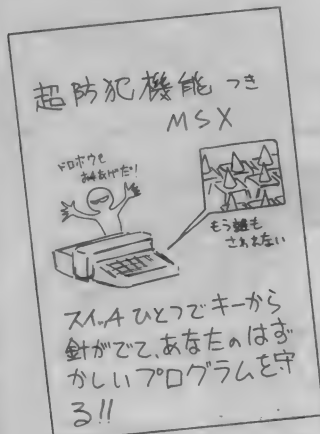 超防犯機能つき
MSX
ドロボウも
おてあげだ!
もう誰も
さわれない
スイッチひとつでキーから
針がでて、あなたのはず
かしいプログラムを守
る!!